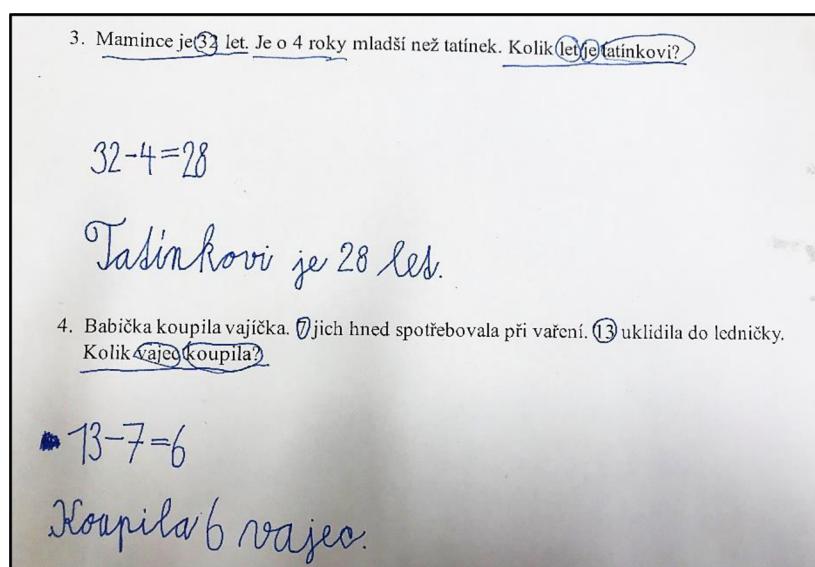 3. Mamince je 32 let. Je o 4 roky mladší než tatínek. Kolik let je tatínkovi?
32-4=28
Tatínkovi je 28 let.
4. Babička koupila vajíčka. 7 jich hned spotřebovala při vaření. 13 uklidila do ledničky.
Kolik vajec koupila?
13-7=6
Koupila 6 vajec.